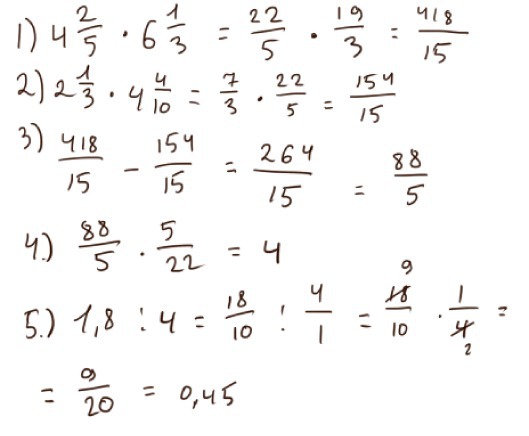 1) 4 2/5 · 6 1/3 = 22/5 · 19/3 = 418/15
2) 2 1/3 · 4 4/10 = 7/3 · 22/5 = 154/15
3) 418/15 - 154/15 = 264/15 = 88/5
4.) 88/5 · 5/22 = 4
5.) 1,8 : 4 = 18/10 : 4/1 = 18/10 9 · 1/4 2 =
= 9/20 = 0,45